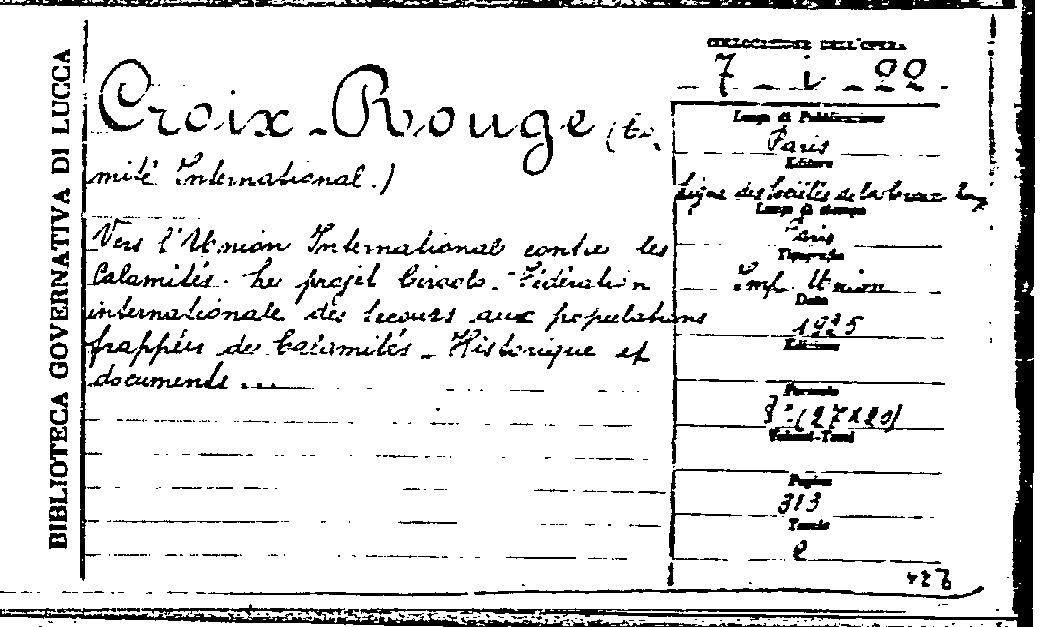 BIBLIOTECA GOVERNATIVA DI LUCCA
Croix-Rouge (Co-
mité International.)
Vers l'Union International contre les
Calamités. Le projet Ciraolo - Fédération
internationale des secours aux populations
frappées de Calamités - Historique et
documents ...
COLLOCAZIONE DELL'OPERA
7 - i - 22
Luogo di Pubblicazione
Paris
Editore
Ligue des Sociétés de la Croix
Luogo di stampa
Paris
Tipografia
Imp. Union
Data
1925
Edizione
Formato
8° (27x20)
Volumi-Tomi
Pagine
313
Tavole